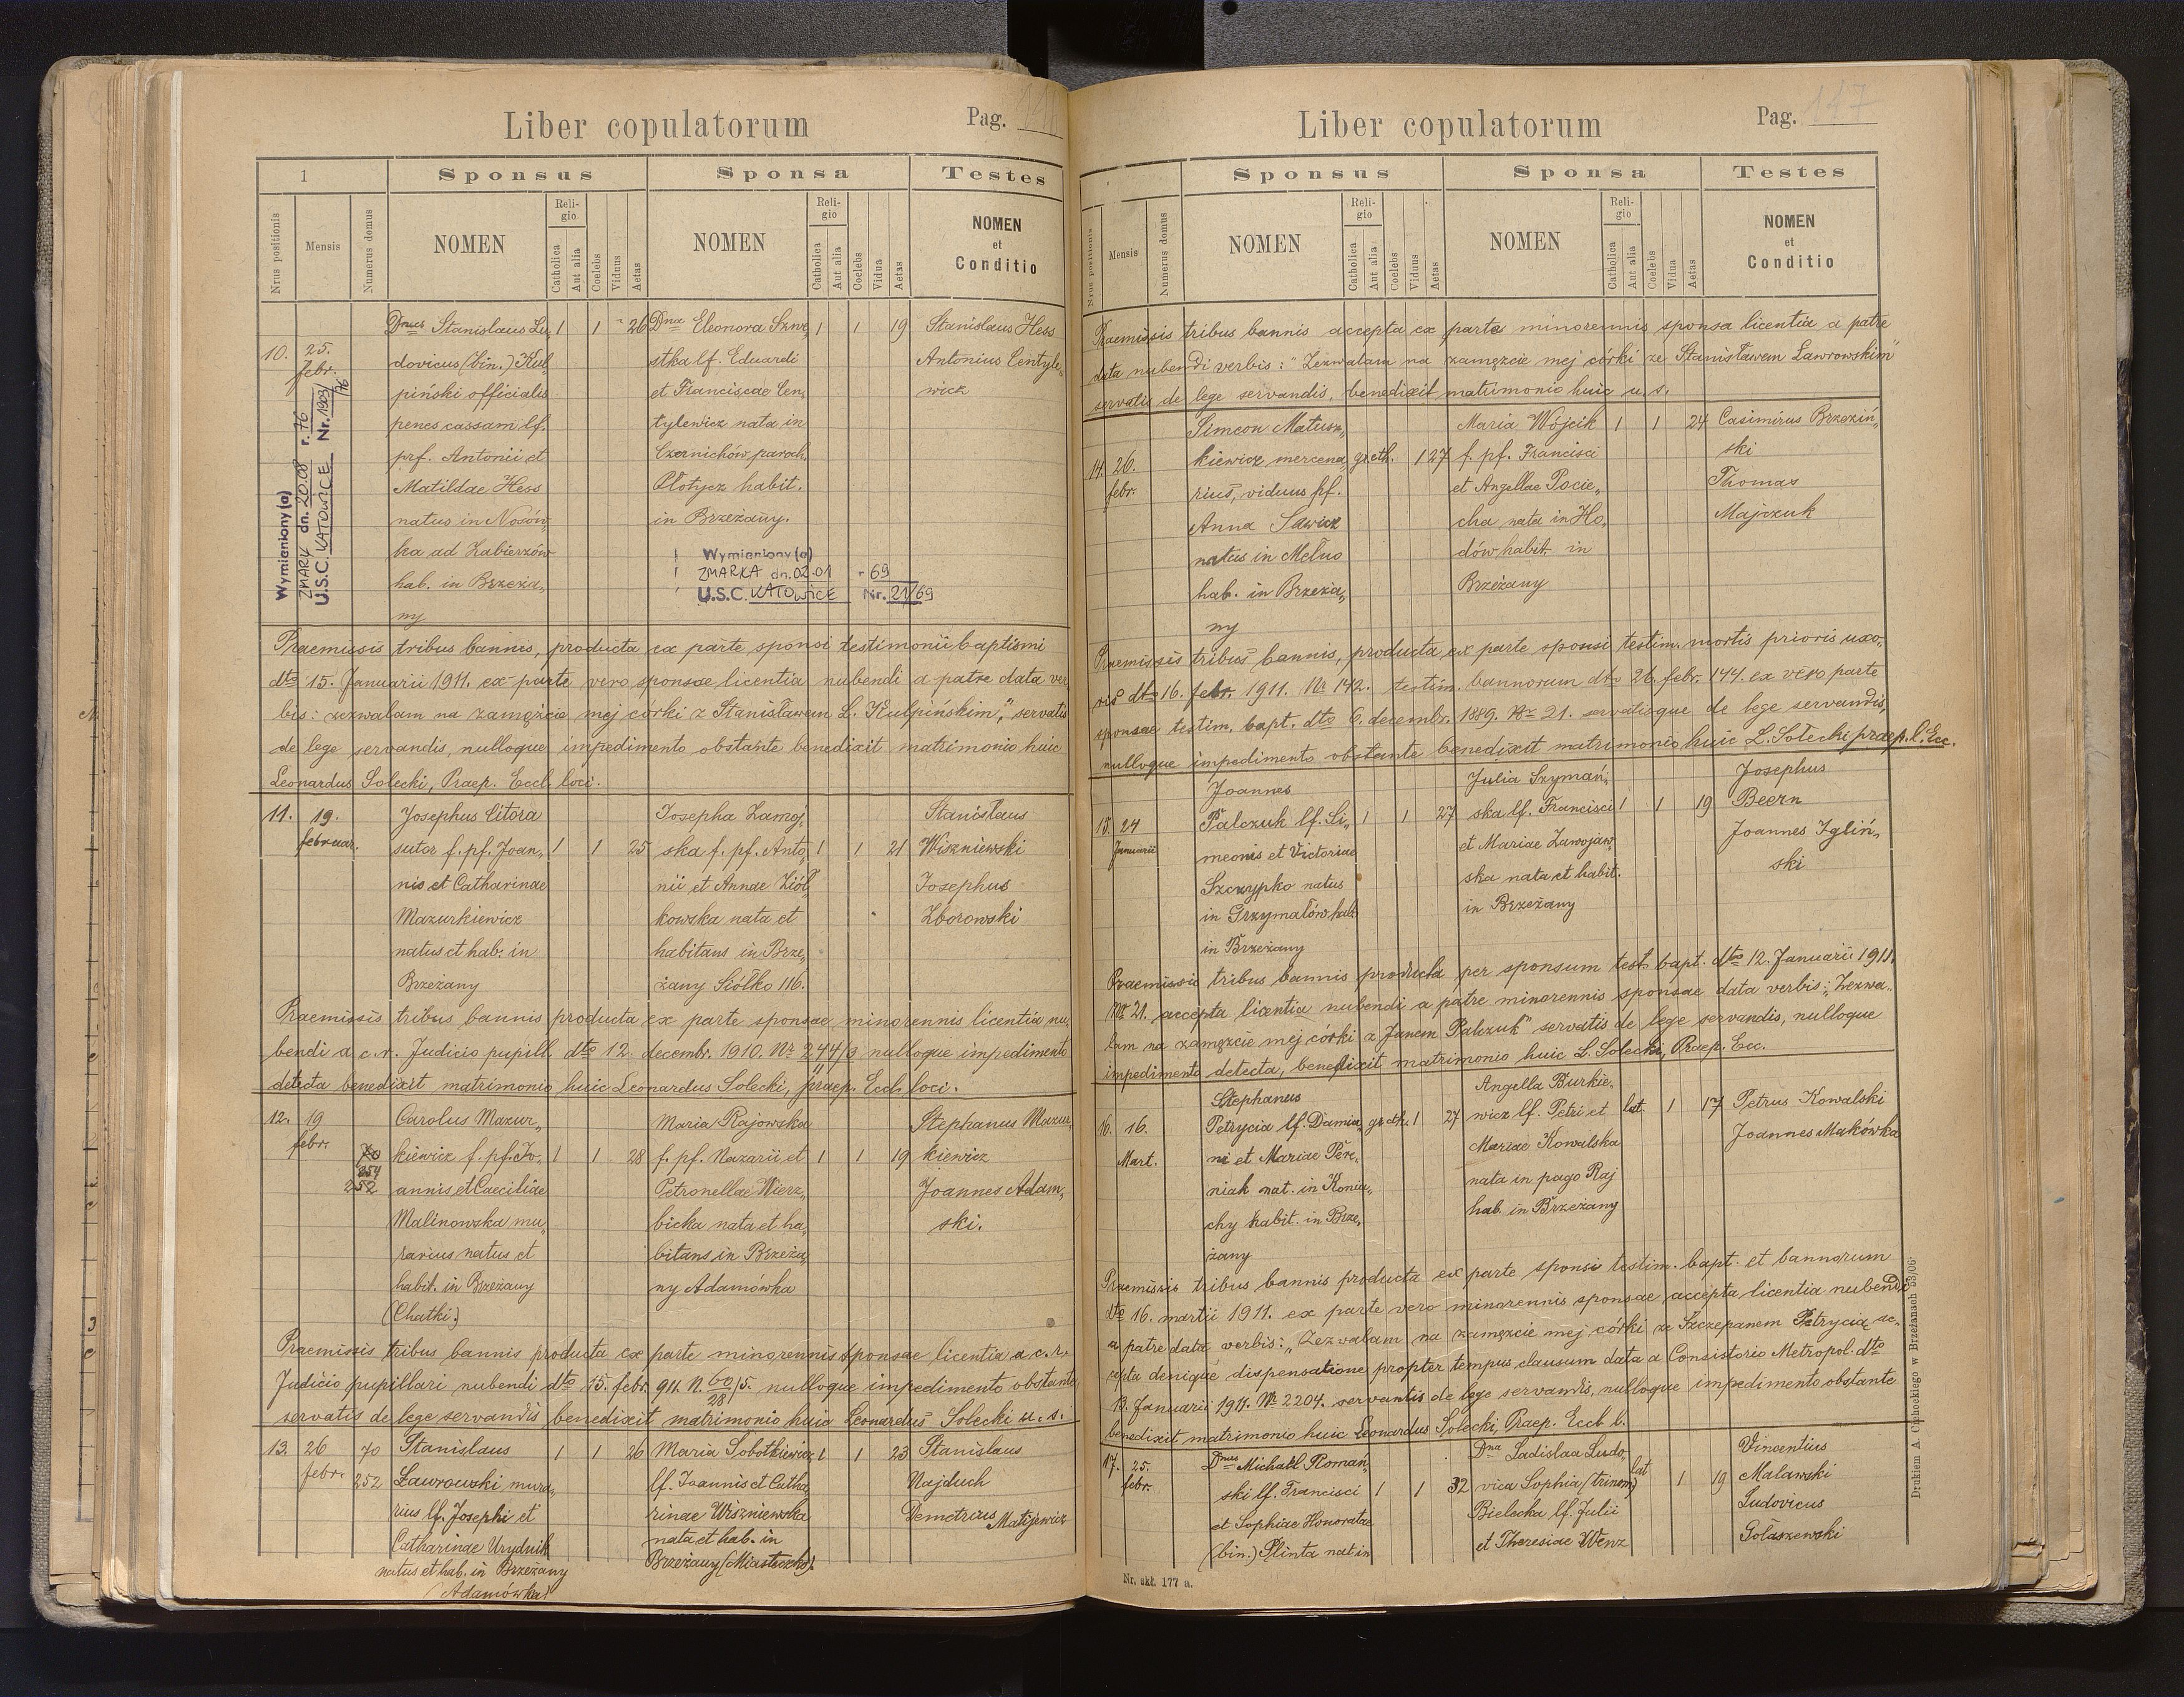 Liber copulatorum
Pag.
1
Sponsus
Sponsa
Testes
Nrus positionis
Mensis
Numerus domus
NOMEN
Religio
Catholica
Aut alia
Coelebs
Viduus
Aetas
NOMEN
Religio
Catholica
Aut alia
Coelebs
Vidua
Aetas
NOMEN
et
Conditio
Dnus Stanislaus Lu, 1 1 26 Dna Eleonora Szwe, 1 1 19 Stanislaus Hess
10. 25. febr. dovicus (bin.) Kul, stka lf. Eduardi Antonius Centyle,
piński officialis et Franciscae Cen, wick
penes cassam lf. tylewicz nata in
prf. Antonii et Czernichów paroch.
Matildae Hess Płotycz habit.
natus in Nosów, in Brzeżany.
ka ad Zabierzów
hab. in Brzeża,
ny
Wymieniony(a)
ZMARŁ dn. 20.08 r. 76
U.S.C. KATOWICE Nr. 1909/76
Wymieniony(a)
ZMARŁA dn. 02.01 - 69
U.S.C. KATOWICE Nr. 21/69
Praemissis tribus bannis, producta ex parte sponsi testimonii baptismi
dto 15. Januarii 1911. ex parte vero sponsae licentia nubendi a patre data ver
bis: zezwalam na zamęźcie mej córki z Stanisławem L. Kulpińskim", servatis
de lege servandis, nulloque impedimento obstante benedixit matrimonio huic
Leonardus Solecki, Praep. Eccl. loci.
11. 19. Josephus Citora Josepha Zamoj, Stanislaus
februar. sutor f. pf. Joan, 1 1 25 ska f. pf. Anto, 1 1 21 Wiszniewski
nis et Catharinae nii et Annae Ziół, Josephus
Mazurkiewicz kowska nata et Zborowski
natus et hab. in habitans in Brze,
Brzeżany żany Siółko 116.
Praemissis tribus bannis producta ex parte sponsae minorennis licentia nu,
bendi a c. r. Judicio pupill. dto 12. decembr. 1910. Nr 244/9 nulloque impedimento
detecta benedixit matrimonio huic Leonardus Solecki, praep. Eccl. loci.
12. 19 Carolus Mazur, Maria Rajowska Stephanus Mazur,
febr. 70 kiewicz f. pf. Jo, 1 1 28 f. pf. Nazarii et 1 1 19 kiewicz
252 annis et Caeciliae Petronellae Wierz, Joannes Adam,
Malinowska mu, bicka nata et ha, ski.
rarius natus et bitans in Brzeża,
habit. in Brzeżany ny Adamówka
(Chatki)
Praemissis tribus bannis producta ex parte minorennis sponsae licentia a c. r.
Judicio pupillari nubendi dto 15. febr. 911. N. 60/28/5. nulloque impedimento obstante
servatis de lege servandis, benedixit matrimonio huic Leonardus Solecki u. s.
13. 26 70 Stanislaus 1 1 26 Maria Sobotkiewicz 1 1 23 Stanislaus
febr. 252 Ławrowski mura, lf. Joannis et Catha, Najduch
rius lf. Josephi et rinae Wiszniewska Demetrius Matijewicz
Catharinae Urydnik nata et hab. in
natus et hab. in Brzeżany Brzeżany (Miasteczko).
(Adamówka)
Liber copulatorum
Pag. 147
Sponsus
Sponsa
Testes
Nrus positionis
Mensis
Numerus domus
NOMEN
Religio
Catholica
Aut alia
Coelebs
Viduus
Aetas
NOMEN
Religio
Catholica
Aut alia
Coelebs
Vidua
Aetas
NOMEN
et
Conditio
Praemissis tribus bannis accepta ex parte minorennis sponsa licentia a patre
data nubendi verbis: "Zezwalam na zamęzcie mej córki ze Stanisławem Ławrowskim"
servatis de lege servandis, benedixit matrimonio huic u. s.
Simeon Matusz, Maria Wójcik 1 1 24 Casimirus Brzeziń,
14. 26. kiewicz mercena, gr. cth. 1 27 f. pf. Francisci ski
febr. rius, viduus pf. et Angellae Pocie, Thomas
Anna Sawicz cha nata in Ho, Majczuk
natus in Metno dów habit in
hab. in Brzeża, Brzeżany
ny
Praemissis tribus bannis, producta ex parte sponsi testim. mortis prioris uxo,
ris dto 16. febr. 1911. No 142. testim. bannorum dto 26. febr. 144. ex vero parte
sponsae testim. bapt. dto 6. decembr. 1889. Nr 21. servatisque de lege servandis,
nulloque impedimento obstante benedixit matrimonio huic L. Solecki praep. l. Ecc.
Joannes Julia Szymań, Josephus
15. 24 Palczuk lf. Si, 1 1 27 ska lf. Francisci 1 1 19 Beern
Januarii meonis et Victoriae et Mariae Zawojaw, Joannes Igliń,
Szczypko natus ska nata et habit. ski
in Grzymałów hab. in Brzeżany
in Brzeżany
Praemissis tribus bannis producta per sponsum test. bapt. dto 12. Januarii 1911.
No 21. accepta licentia nubendi a patre minorennis sponsae data verbis: „Zezwa,
lam na zamęzcie mej córki z Janem Palczuk" servatis de lege servandis, nulloque
impedimento detecta, benedixit matrimonio huic L. Solecki, Praep. Ecc.
Stephanus Angella Burkie,
16. 16. Petrycia lf. Damia, gr. cth. 1 27 wicz lf. Petri et lat. 1 17 Petrus Kowalski
Mart. ni et Mariae Pere, Mariae Kowalska Joannes Makówka
niak nat. in Konia, nata in pago Raj
chy habit. in Brze, hab. in Brzeżany
żany
Praemissis tribus bannis producta ex parte sponsi testim. bapt. et bannorum
dto 16. martii 1911. ex parte vero minorennis sponsae accepta licentia nubendi
a patre data verbis: „Zezwalam na zamęzcie mej córki ze Szczepanem Petrycią ac,
cepta denique dispensatione propter tempus clausum data a Consistorio Metropol. dto
13. Januarii 1911. No 2204. servantis de lege servandis, nulloque impedimento obstante
benedixit matrimonio huic Leonardus Solecki, Praep. Eccl. l.
17. 25. Dnus Michaël Roman, Dna Ladislaa Ludo, Vincentius
febr. ski lf. Francisci 1 1 32 vica Sophia (trinom) lat 1 19 Malawski
et Sophiae Honoratae Bielecka lf. Julii Ludovicus
(bin.) Plinta nat in et Theresiae Wenz Gołaszewski
Nr. skł. 177 a.
Drukiem A. Cehockiego w Brzeżanach 53/06